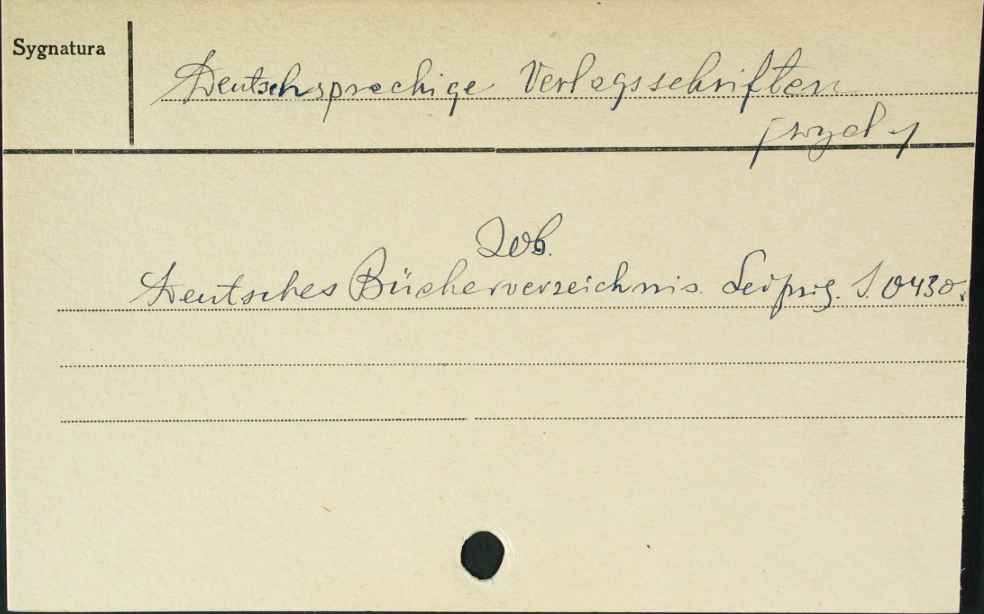 Sygnatura
Deutschsprachige Verlagsschriften
[wyd.]
Zob.
Deutsches Bücherverzeichnis. Leipzig. S. 0430.